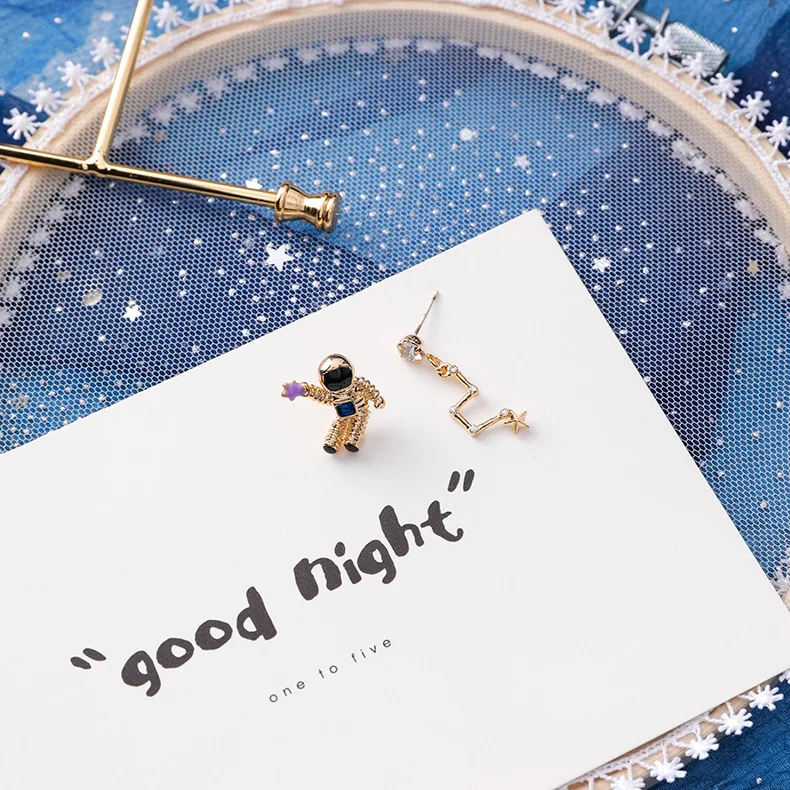 "good night"
one to five